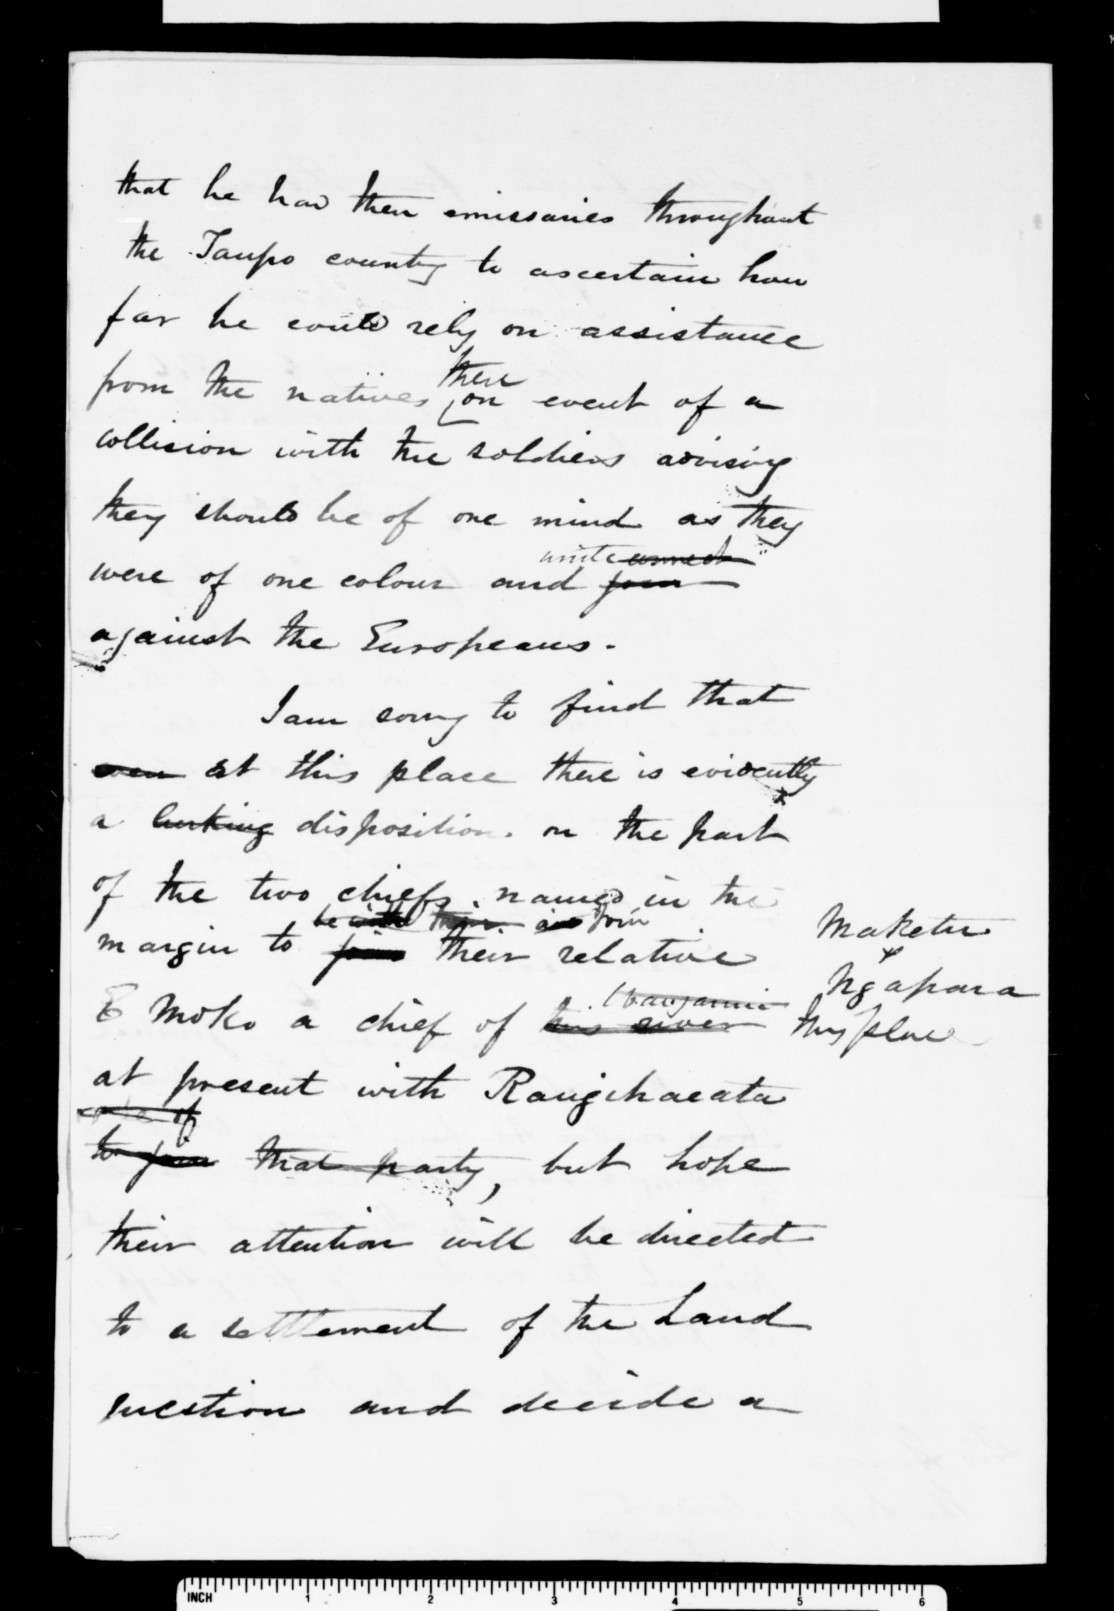 that he had then emissaries throughout
the Taupo country to ascertain how
far he could rely on assistance
from the natives there on event of a
collision with the soldiers advising
they should be of one mind as they
were of one colour and unite connect join
against the Europeans.
I am sorry to find that
even at this place there is evidently
a lurking disposition on the part
of the two chiefs named in the
margin to join be with them and join their relative
Maketu
&
Ngapara
E Moko a chief of this river Wanganui this place
at present with Rangihaeata
to join that party, but hope
their attention will be directed
to a settlement of the Land
question and decide a
INCH 1 2 3 4 5 6